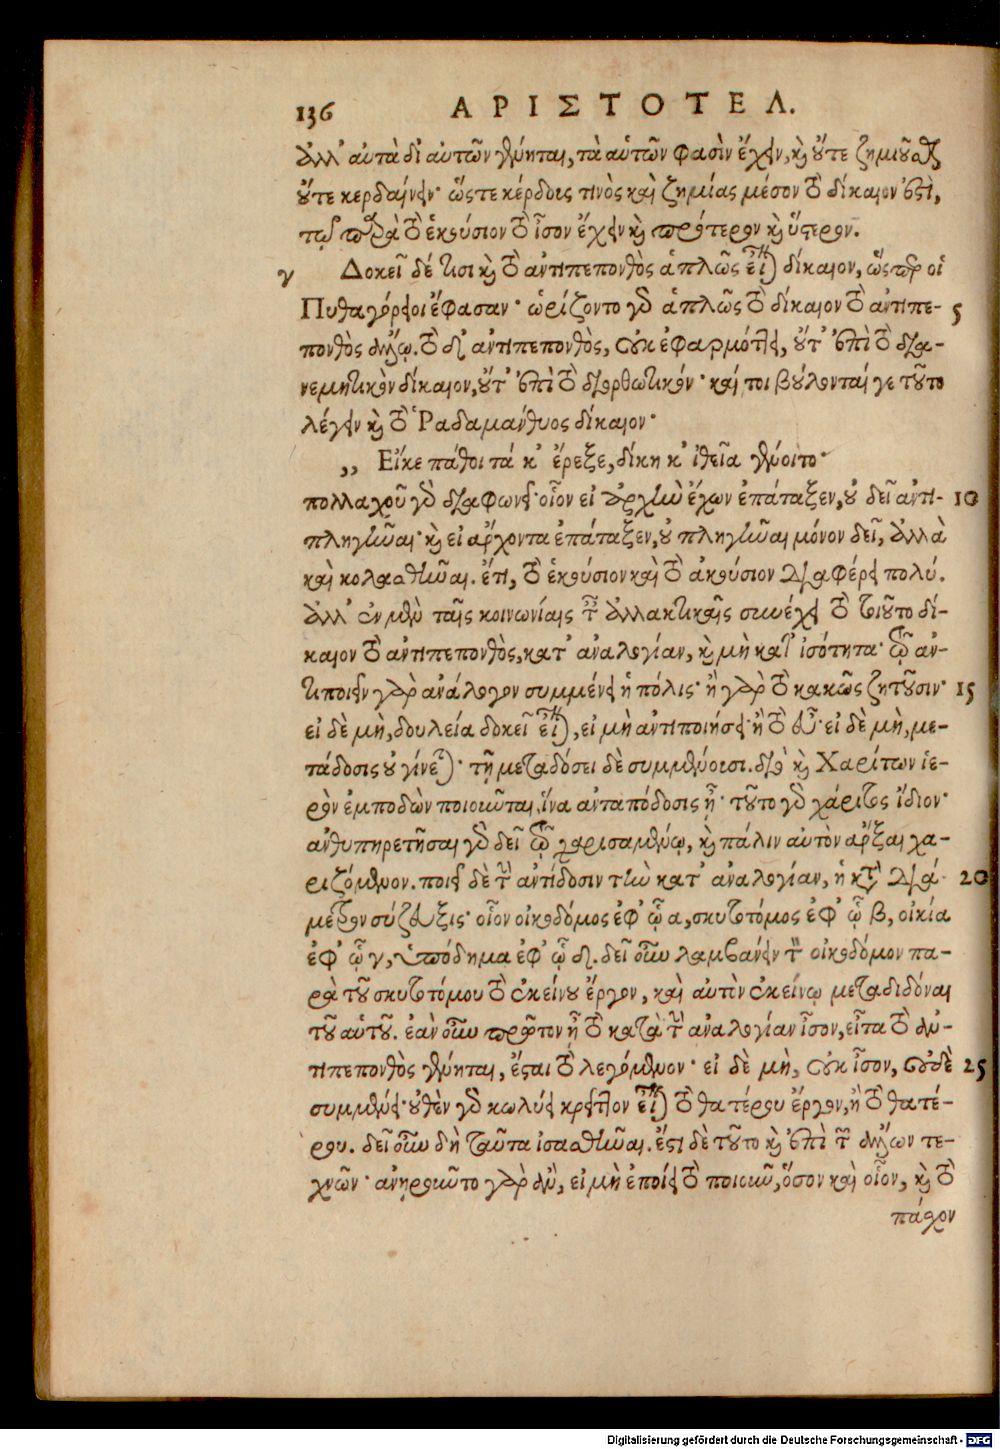 136 ΑΡΙΣΤΟΤΕΛ.
ἀλλ' αὐτὰ δι' αὐτῶν γένηται, τὰ αὑτῶν φασὶν ἔχειν, καὶ οὔτε ζημιοῦσθαι
οὔτε κερδαίνειν· ὥστε κέρδους τινὸς καὶ ζημίας μέσον τὸ δίκαιον ἐστὶ,
τῶν παρὰ τὸ ἑκούσιον τὸ ἶσον ἔχειν καὶ πρότερον καὶ ὕστερον.
γ Δοκεῖ δέ τισι καὶ τὸ ἀντιπεπονθὸς ἁπλῶς εἶναι δίκαιον, ὥσπερ οἱ
Πυθαγόρειοι ἔφασαν· ὡρίζοντο γὰρ ἁπλῶς τὸ δίκαιον τὸ ἀντιπε- 5
πονθὸς ἄλλῳ. τὸ δ' ἀντιπεπονθὸς, οὐκ ἐφαρμόττει, οὔτ' ἐπὶ τὸ δια-
νεμητικὸν δίκαιον, οὔτ' ἐπὶ τὸ διορθωτικόν· καί τοι βούλονταί γε τοῦτο
λέγειν καὶ τὸ Ῥαδαμάνθυος δίκαιον·
,, Εἴκε πάθοι τά κ' ἔρεξε, δίκη κ' ἰθεῖα γένοιτο·
πολλαχοῦ γὰρ διαφωνεῖ· οἷον εἰ ἀρχὴν ἔχων ἐπάταξεν, οὐ δεῖ ἀντι- 10
πληγῆναι· καὶ εἰ ἄρχοντα ἐπάταξεν, οὐ πληγῆναι μόνον δεῖ, ἀλλὰ
καὶ κολασθῆναι. ἔτι, τὸ ἑκούσιον καὶ τὸ ἀκούσιον διαφέρει πολύ.
ἀλλ' ἐν μὲν ταῖς κοινωνίαις ταῖς ἀλλακτικαῖς συνέχει τὸ τοιοῦτο δί-
καιον τὸ ἀντιπεπονθὸς, κατ' ἀναλογίαν, καὶ μὴ κατ' ἰσότητα· τῷ ἀν-
τιποιεῖν γὰρ ἀνάλογον συμμένει ἡ πόλις· ἢ γὰρ τὸ κακῶς ζητοῦσιν· 15
εἰ δὲ μὴ, δουλεία δοκεῖ εἶναι, εἰ μὴ ἀντιποιήσει· ἢ τὸ εὖ· εἰ δὲ μὴ, με-
τάδοσις οὐ γίνεται· τῇ μεταδόσει δὲ συμμένουσι. διὸ καὶ Χαρίτων ἱε-
ρὸν ἐμποδὼν ποιοῦνται, ἵνα ἀνταπόδοσις ᾖ· τοῦτο γὰρ χάριτος ἴδιον·
ἀνθυπηρετῆσαι γὰρ δεῖ τῷ χαρισαμένῳ, καὶ πάλιν αὐτὸν ἄρξαι χα-
ριζόμενον. ποιεῖ δὲ τὴν ἀντίδοσιν τὴν κατ' ἀναλογίαν, ἡ κατὰ διά- 20
μετρον σύζευξις· οἷον οἰκοδόμος ἐφ' ᾧ α, σκυτοτόμος ἐφ' ᾧ β, οἰκία
ἐφ' ᾧ γ, ὑπόδημα ἐφ' ᾧ δ. δεῖ οὖν λαμβάνειν τὸν οἰκοδόμον πα-
ρὰ τοῦ σκυτοτόμου τὸ ἐκείνου ἔργον, καὶ αὐτὸν ἐκείνῳ μεταδιδόναι
τοῦ αὑτοῦ. ἐὰν οὖν πρῶτον ᾖ τὸ κατὰ τὴν ἀναλογίαν ἶσον, εἶτα τὸ ἀν-
τιπεπονθὸς γένηται, ἔσται τὸ λεγόμενον· εἰ δὲ μὴ, οὐκ ἶσον, οὐδὲ 25
συμμένει· οὐθὲν γὰρ κωλύει κρεῖττον εἶναι τὸ θατέρου ἔργον, ἢ τὸ θατέ-
ρου. δεῖ οὖν δὴ ταῦτα ἰσασθῆναι. ἔστι δὲ τοῦτο καὶ ἐπὶ τῶν ἄλλων τε-
χνῶν· ἀνῃροῦντο γὰρ ἂν, εἰ μὴ ἐποίει τὸ ποιοῦν, ὅσον καὶ οἷον, καὶ τὸ
πάσχον
Digitalisierung gefördert durch die Deutsche Forschungsgemeinschaft - DFG